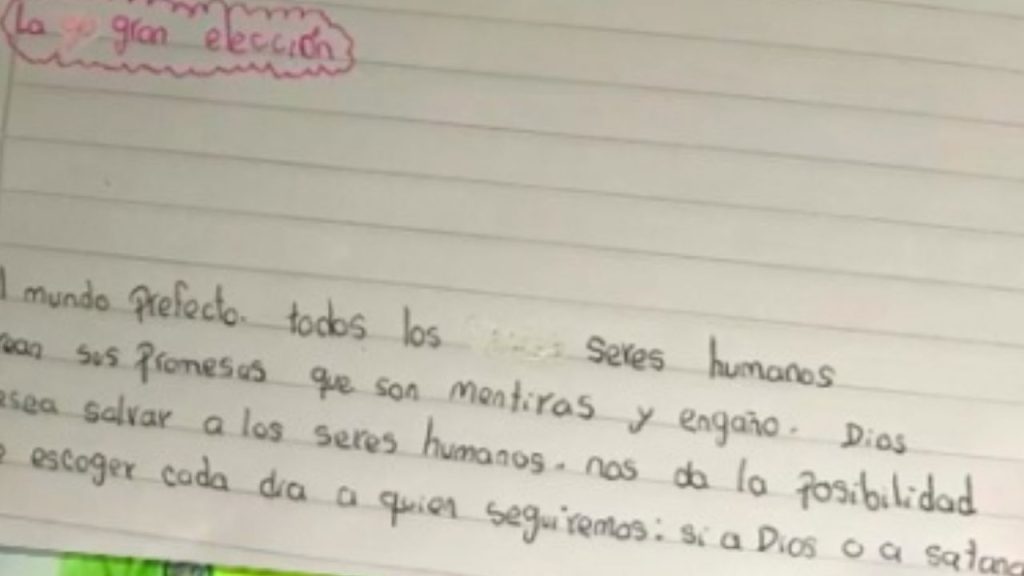 La gran elección
mundo prefecto. todos los seres humanos
sus promesas que son mentiras y engaño. Dios
salvar a los seres humanos. nos da la posibilidad
escoger cada dia a quien seguiremos: si a Dios o a satana